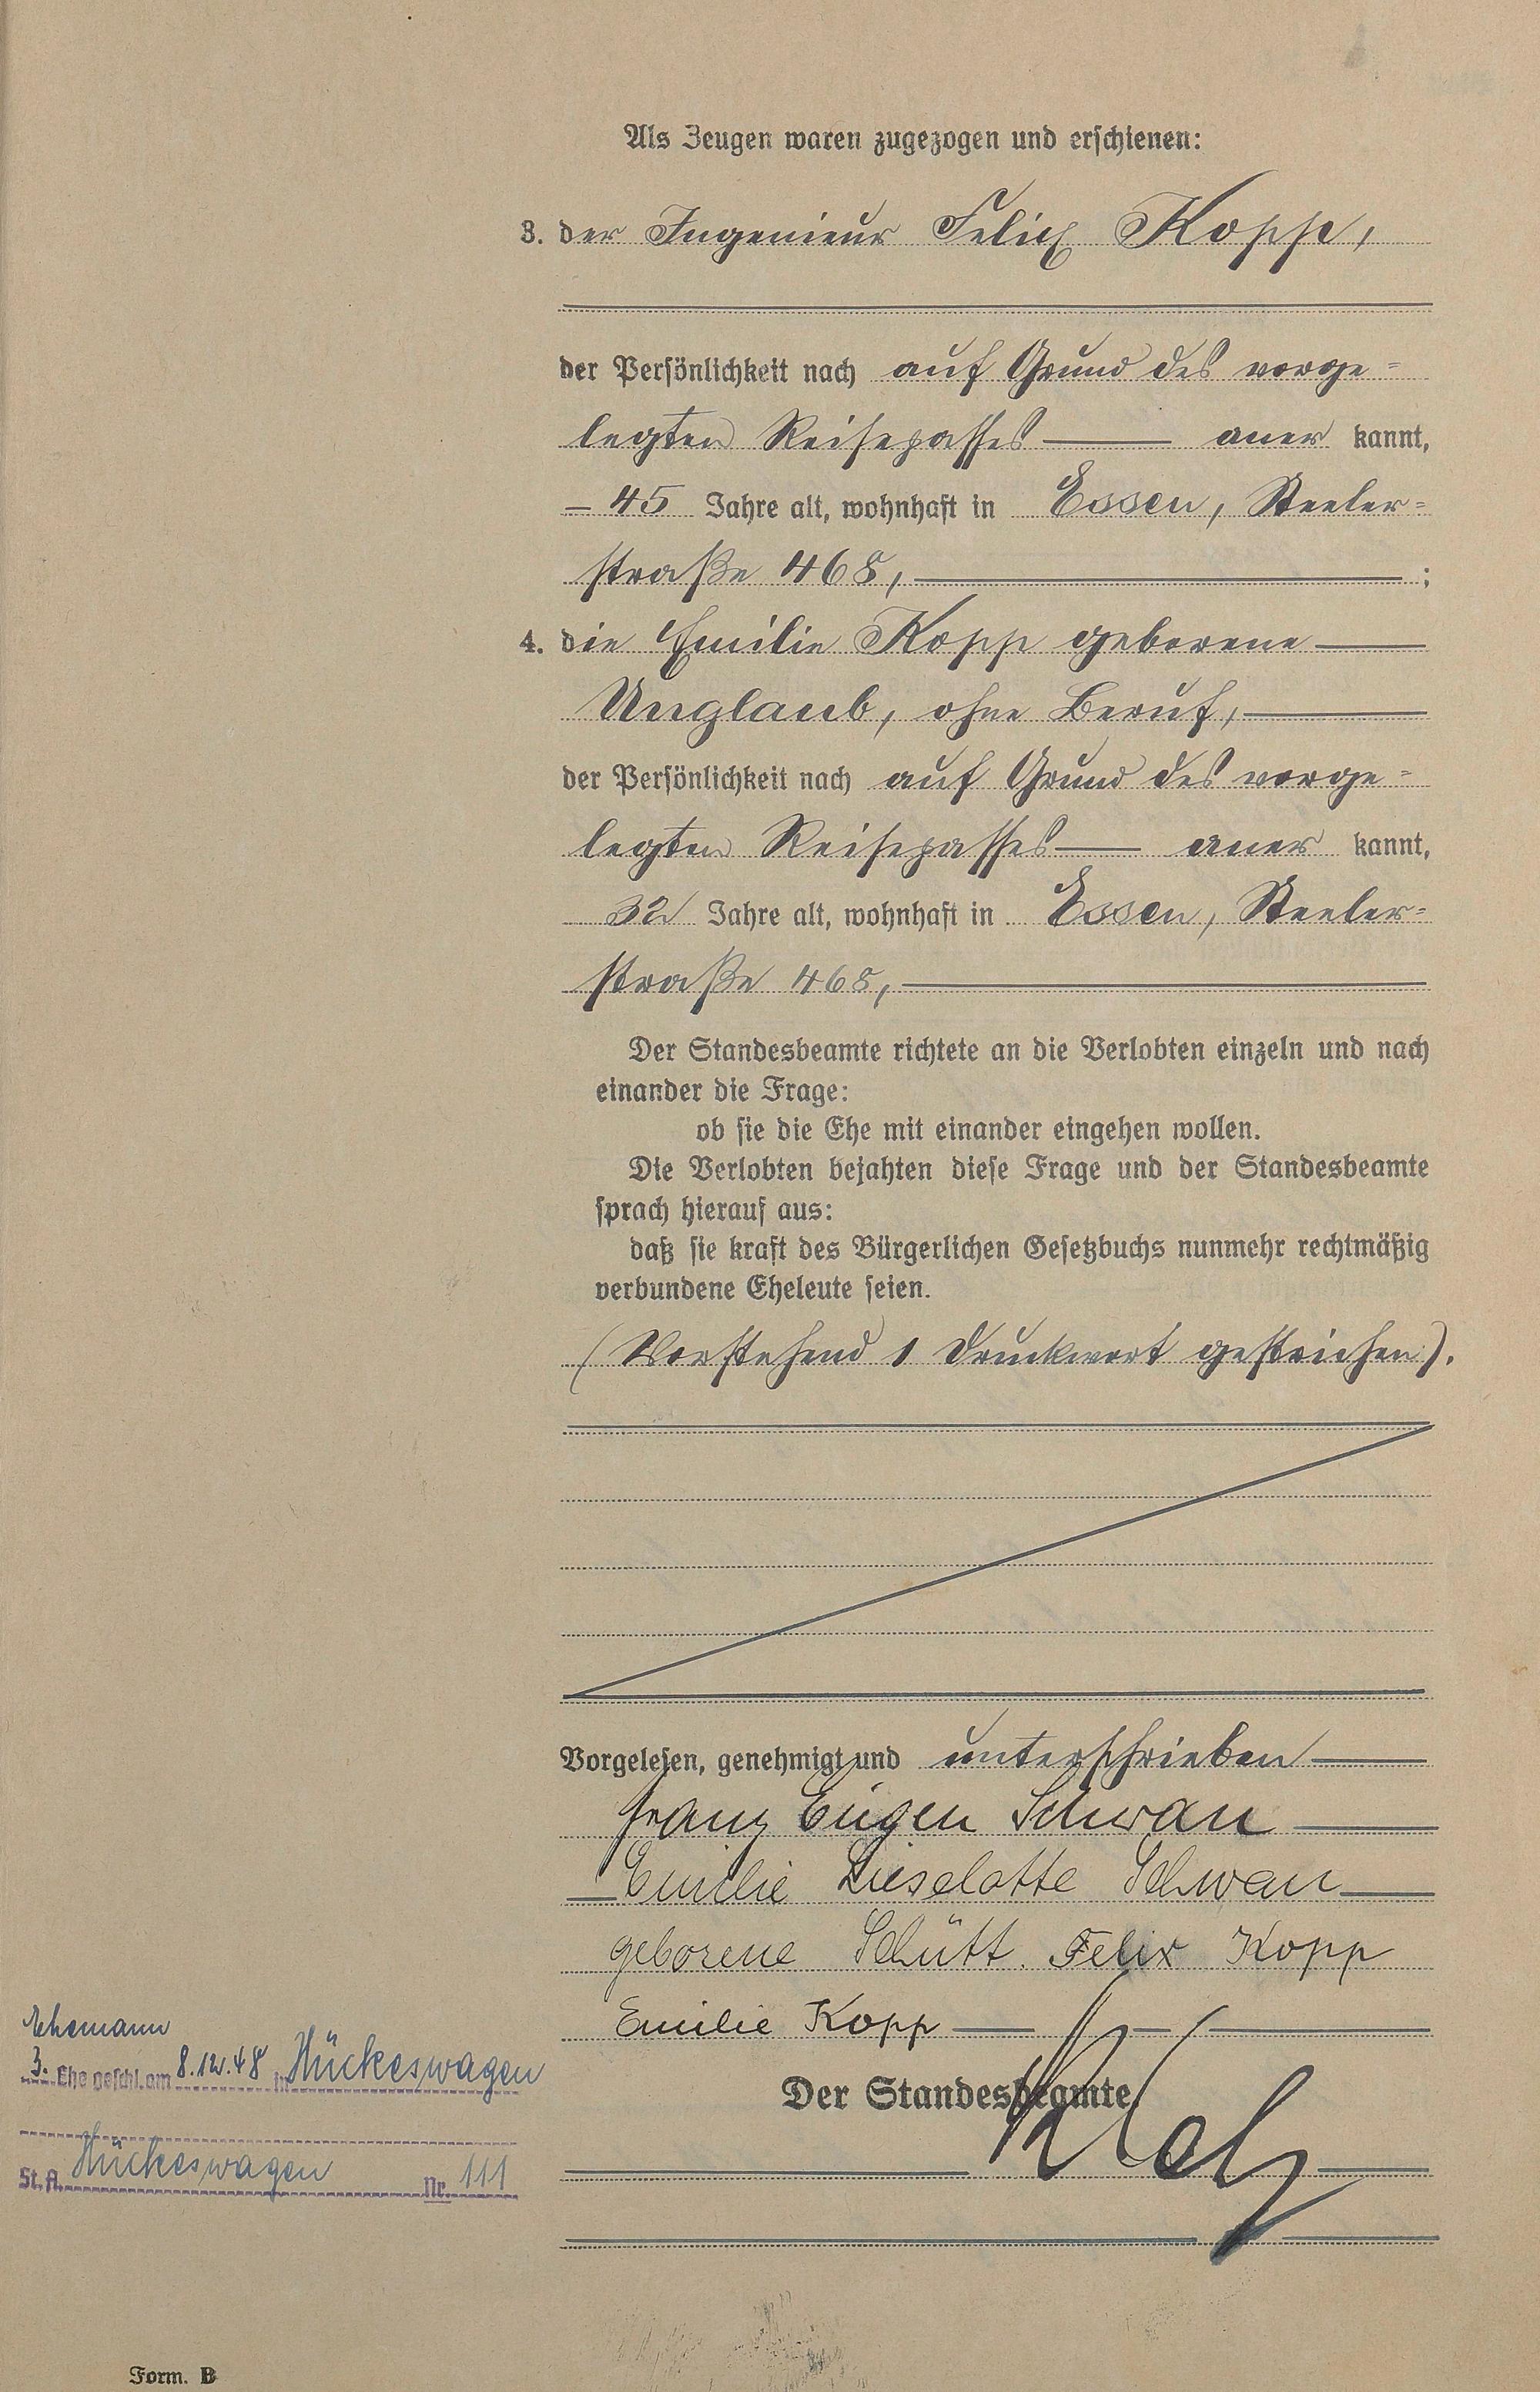 Als Zeugen waren zugezogen und erschienen:
3. der Ingenieur Felix Kopp,
der Persönlichkeit nach auf Grund des vorge=
legten Reisepasses — aner kannt,
– 45 Jahre alt, wohnhaft in Essen, Steeler=
straße 468, — ;
4. die Emilie Kopp geborene —
Unglaub, ohne Beruf, —
der Persönlichkeit nach auf Grund des vorge=
legten Reisepasses — aner kannt,
32 Jahre alt, wohnhaft in Essen, Steeler=
straße 468, —
Der Standesbeamte richtete an die Verlobten einzeln und nach
einander die Frage:
ob sie die Ehe mit einander eingehen wollen.
Die Verlobten bejahten diese Frage und der Standesbeamte
sprach hierauf aus:
daß sie kraft des Bürgerlichen Gesetzbuchs nunmehr rechtmäßig
verbundene Eheleute seien.
(Vorstehend 1 Druckwort gestrichen).
Vorgelesen, genehmigt und unterschrieben —
Franz Eugen Schwan —
— Emilie Lieselotte Schwan —
geborene Schütt. Felix Kopp
Emilie Kopp —
Der Standesbeamte
Ehemann
3. Ehe geschl. am 8.12.48 in Hückeswagen
St. A. Hückeswagen Nr. 111
Form. B